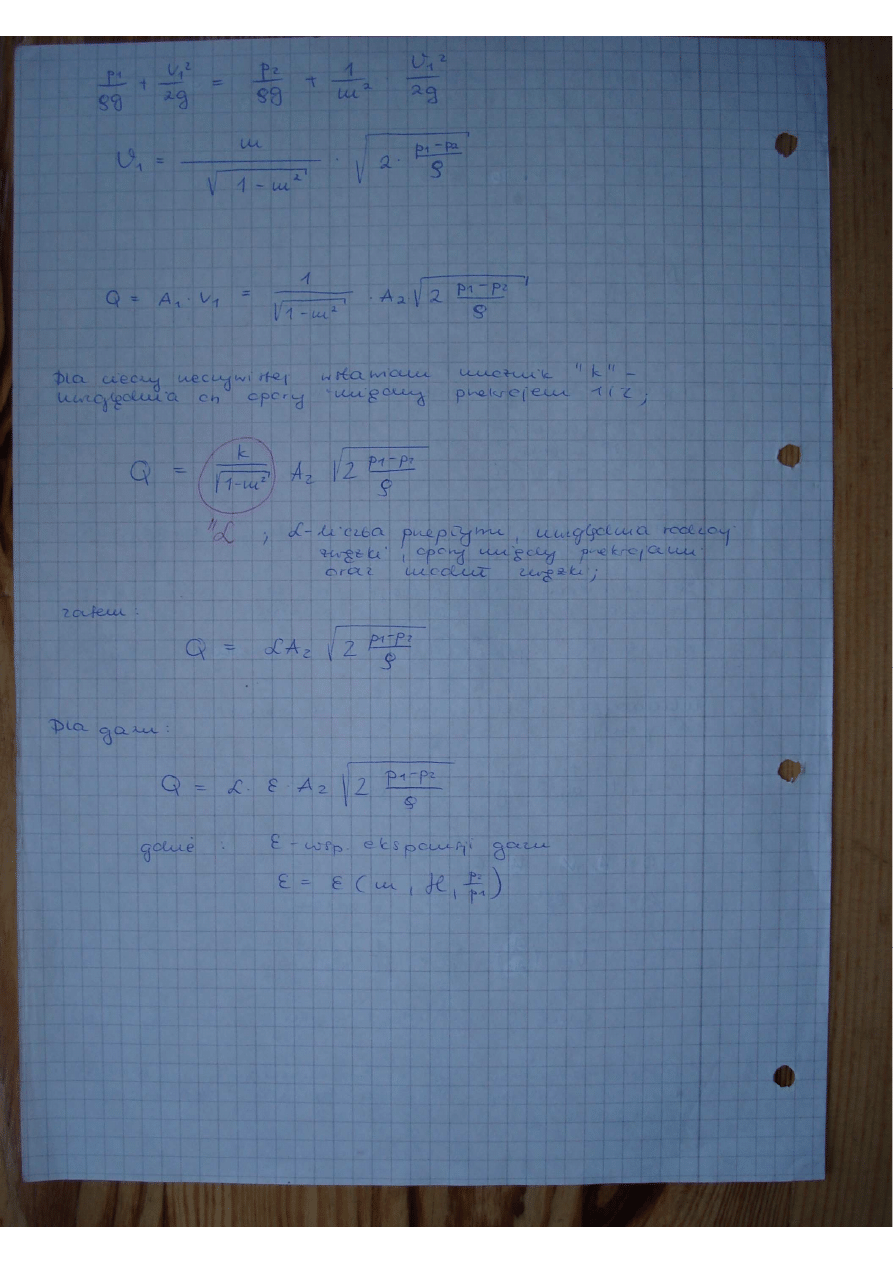 p1/ρg + V1²/2g = p2/ρg + 1/m² · V1²/2g
V1 = m/√(1-m²) · √(2 · (p1-p2)/ρ)
Q = A1 · V1 = 1/√(1-m²) · A2 √(2 (p1-p2)/ρ)
Dla cieczy rzeczywistej wstawiam mnożnik "k" -
uwzględnia on opory między przekrojem 1 i 2;
Q = k/√(1-m²) A2 √(2 (p1-p2)/ρ)
"α ; α - liczba przepływu, uwzględnia rodzaj
zwężki, opory między przekrojami
oraz moduł zwężki;
zatem:
Q = αA2 √(2 (p1-p2)/ρ)
Dla gazu:
Q = α · ε · A2 √(2 (p1-p2)/ρ)
gdzie : ε - wsp. ekspansji gazu
ε = ε (m, ϰ, p2/p1)